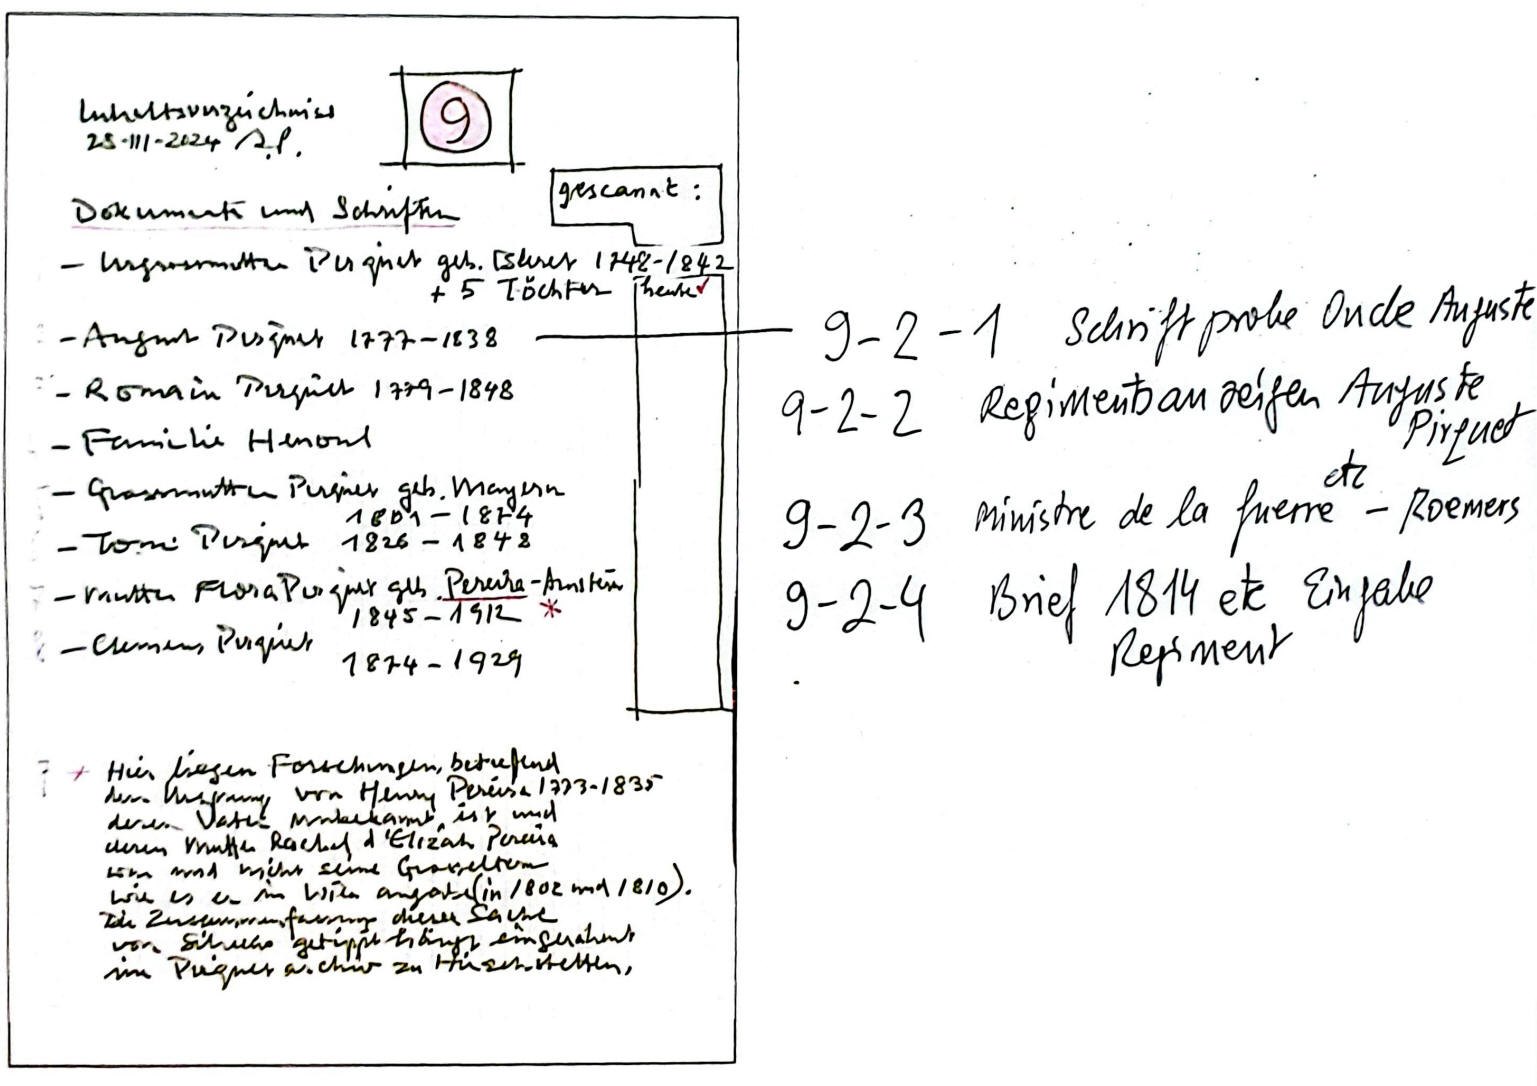 Inhaltsverzeichniss
9
25-III-2024 A.P.
gescannt:
Dokumente und Schriften
- Urgrossmutter Pirquet geb. 1748-1842
+ 5 Töchter heute ✓
- August Pirquet 1777-1838
- Romain Pirquet 1779-1848
- Familie Henoul
- Grossmutter Pirquet geb. Mayern
1801-1874
- Toni Pirquet 1826-1848
- Mutter Flora Pirquet geb. Pereira-Arnstein
1845-1912 *
- Clemens Pirquet
1874-1929
* Hier liegen Forschungen, betreffend
den Ursprung von Henry Pereira 1773-1835
deren Vater unbekannt ist und
deren Mutter Rachel d'Elizah Pereira
war und nicht seine Grosseltern
wie es er in Wien angab (in 1802 und 1810).
Die Zusammenfassung dieser Sache
von getippt hängt eingerahmt
im Pirquet archiv zu Hirschstetten,
9-2-1 Schriftprobe Oncle Auguste
9-2-2 Regimentsanzeigen Auguste
Pirquet
9-2-3 Ministre de la guerre etc - Roemers
9-2-4 Brief 1814 etc Eingabe
Regiment